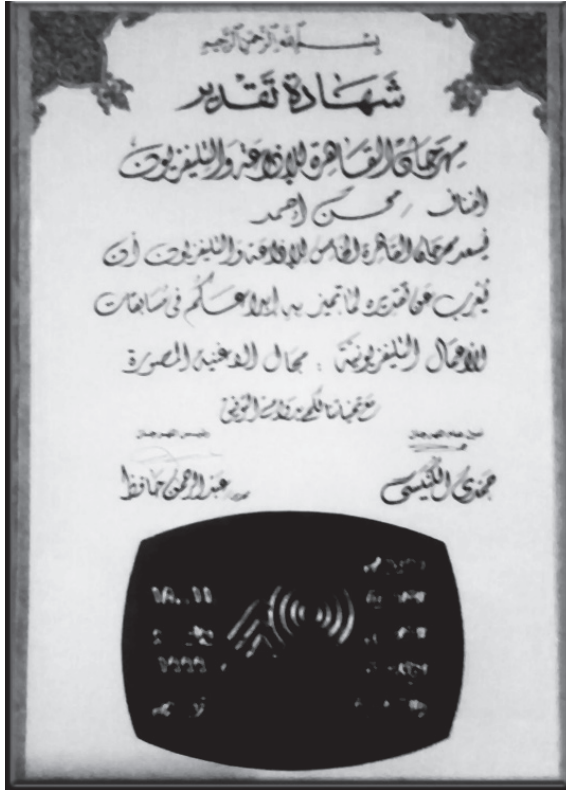 بسم الله الرحمن الرحيم
شهادة تقدير
مهرجان القاهرة للإذاعة والتليفزيون
الفنان / محسن أحمد
يسعد مهرجان القاهرة الخامس للإذاعة والتليفزيون أن
يعرب عن تقديره لما تميز به إبداعكم فى مسابقات
الأعمال التليفزيونية : مجال الاغنية المصورة
مع تمنياتنا لكم بدوام التوفيق
أمين عام المهرجان
رئيس المهرجان
حمدى الكنيسى
عبد الرحمن حافظ
١٩٩٩